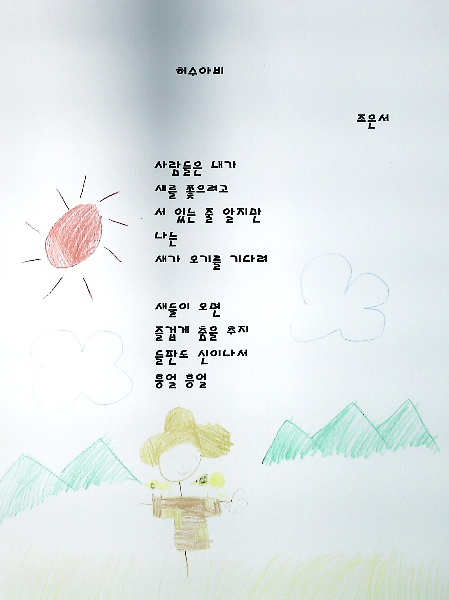 허수아비
조은서
사람들은 내가
새를 쫓으려고
서 있는 줄 알지만
나는
새가 오기를 기다려
새들이 오면
즐겁게 춤을 추지
들판도 신이나서
흥얼 흥얼